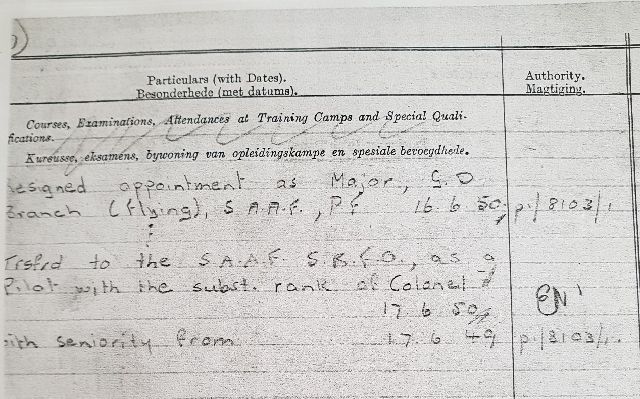 Particulars (with Dates).
Besonderhede (met datums).
Authority.
Magtiging.
Courses, Examinations, Attendances at Training Camps and Special Quali-
fications.
Kursusse, eksamens, bywoning van opleidingskampe en spesiale bevoegdhede.
esigned appointment as Major, G.D
Branch (flying), S.A.A.F., P.F 16.6 50. p./8103/1
Trsfrd to the S.A.A.F. as a
Pilot with the subst. rank of Colonel
17 6 50
ith seniority from 17.6 49 p./8103/1.